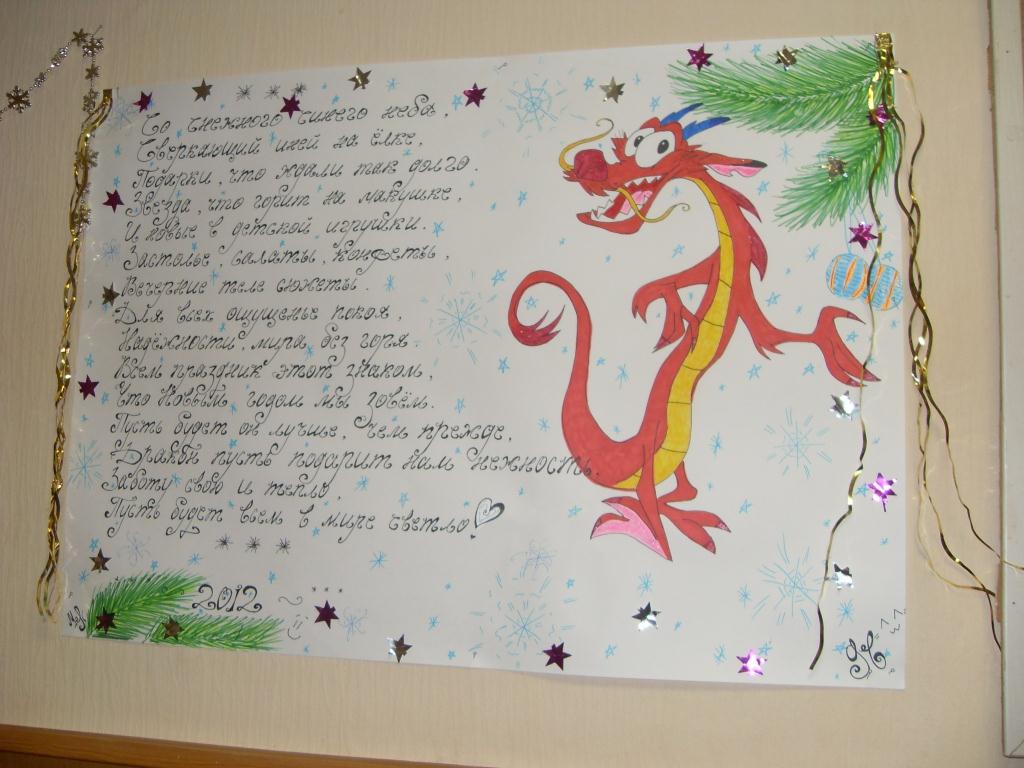 Со снежного синего неба,
Сверкающий иней на ёлке,
Подарки, что ждали так долго.
Звезда, что горит на макушке,
И новые в детской игрушки.
Застолье, салаты, конфеты,
Вечерние теле сюжеты.
Для всех ощущенье покоя,
Надёжности, мира без горя.
Всем праздник этот знаком,
Что Новым годом мы зовём.
Пусть будет он лучше, чем прежде,
Дракон пусть подарит нам нежность.
Заботу свою и тепло,
Пусть будет всем в мире светло
2012